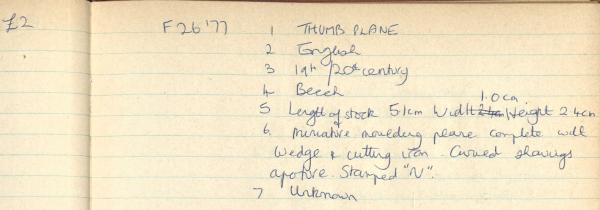 £2 F26'77 1 THUMB PLANE
2 English
3 19th/20th century
4 Beech
1.0cm
5 Length of stock 5.1cm Width Height 2.4cm
6. Miniature moulding plane complete with
wedge & cutting iron. Curved shavings
aperture. Stamped "N".
7 Unknown